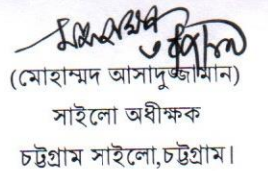 (মোহাম্মদ আসাদুজ্জামান)
সাইলো অধীক্ষক
চট্টগ্রাম সাইলো,চট্টগ্রাম।